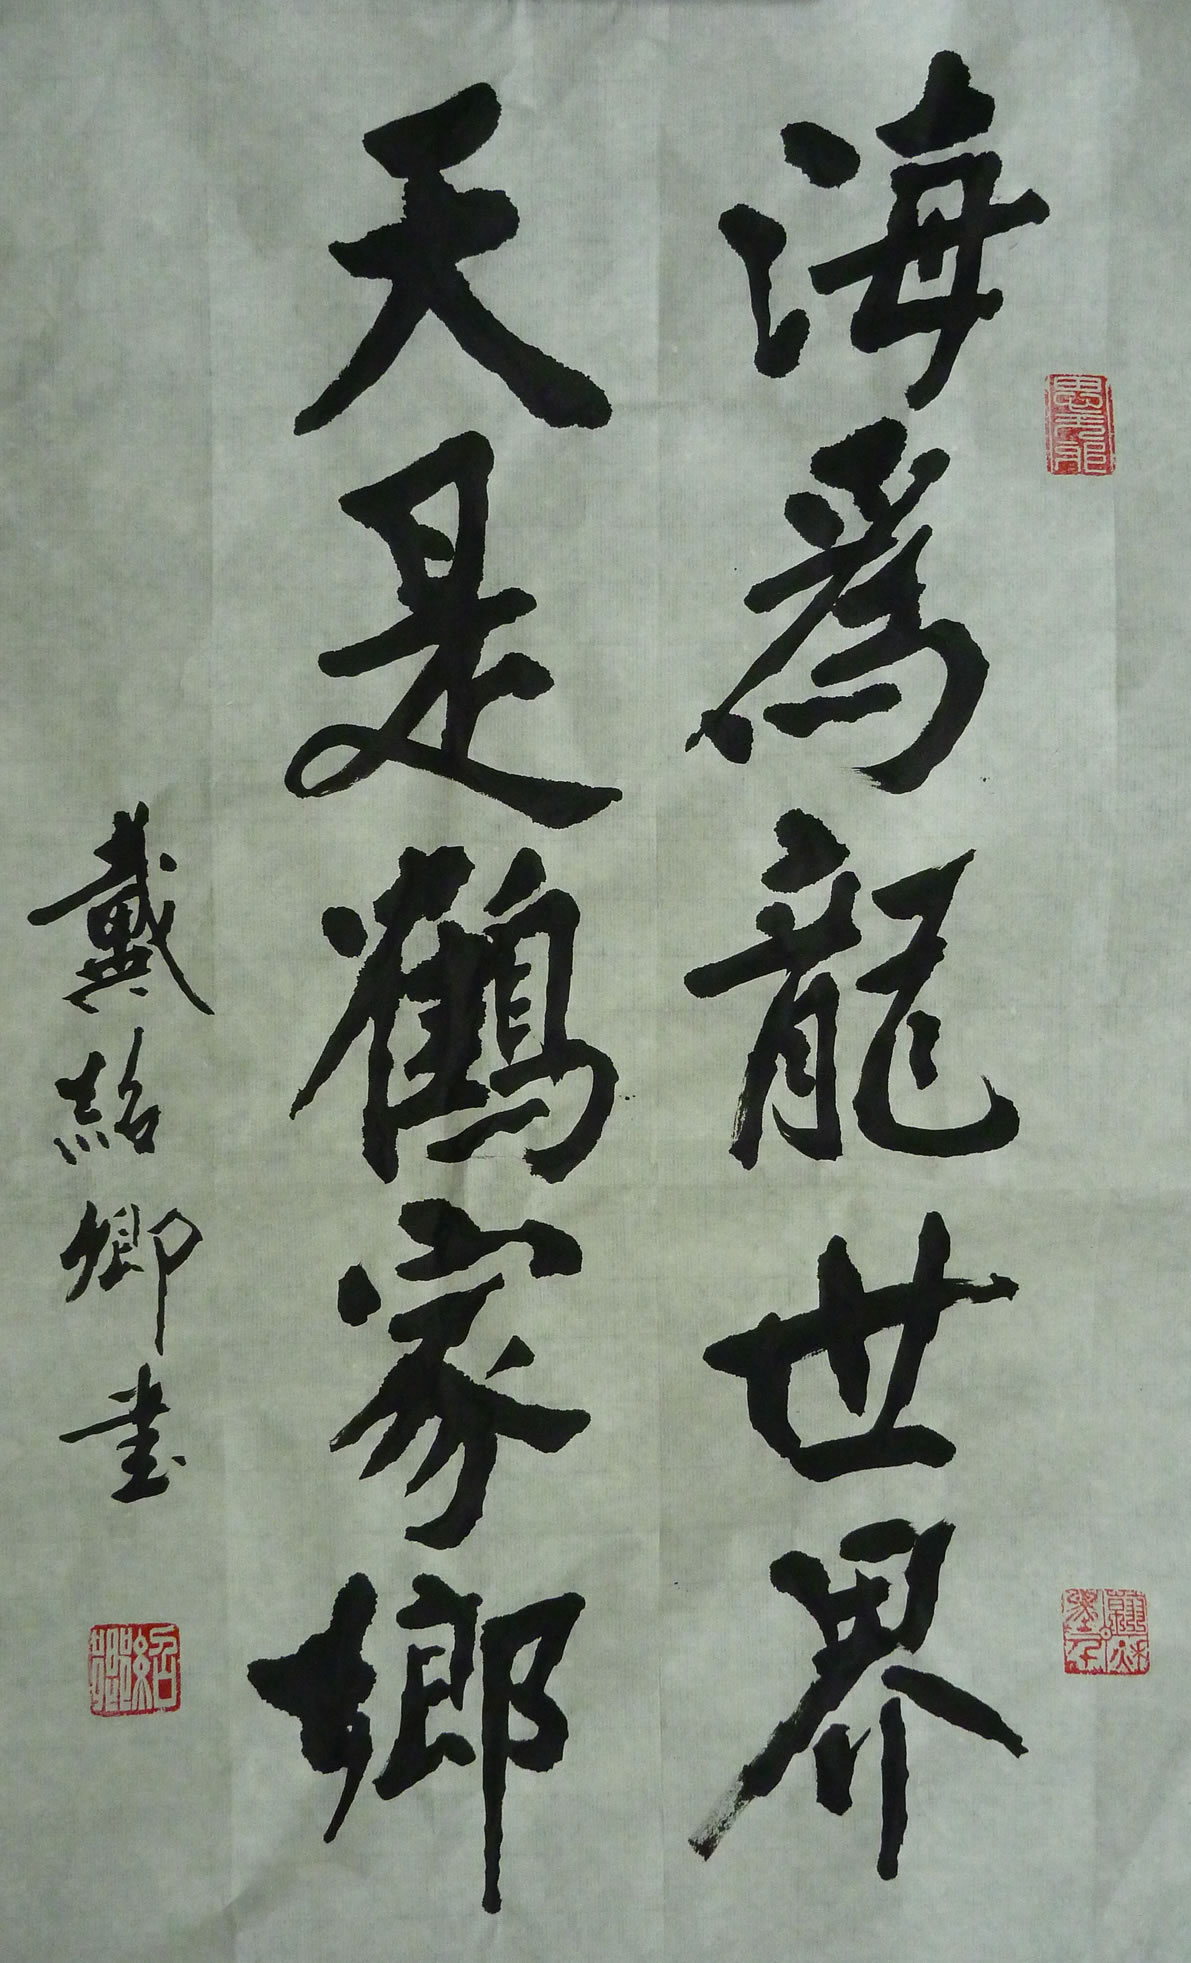 海為龍世界
天是鶴家鄉
戴紹卿書